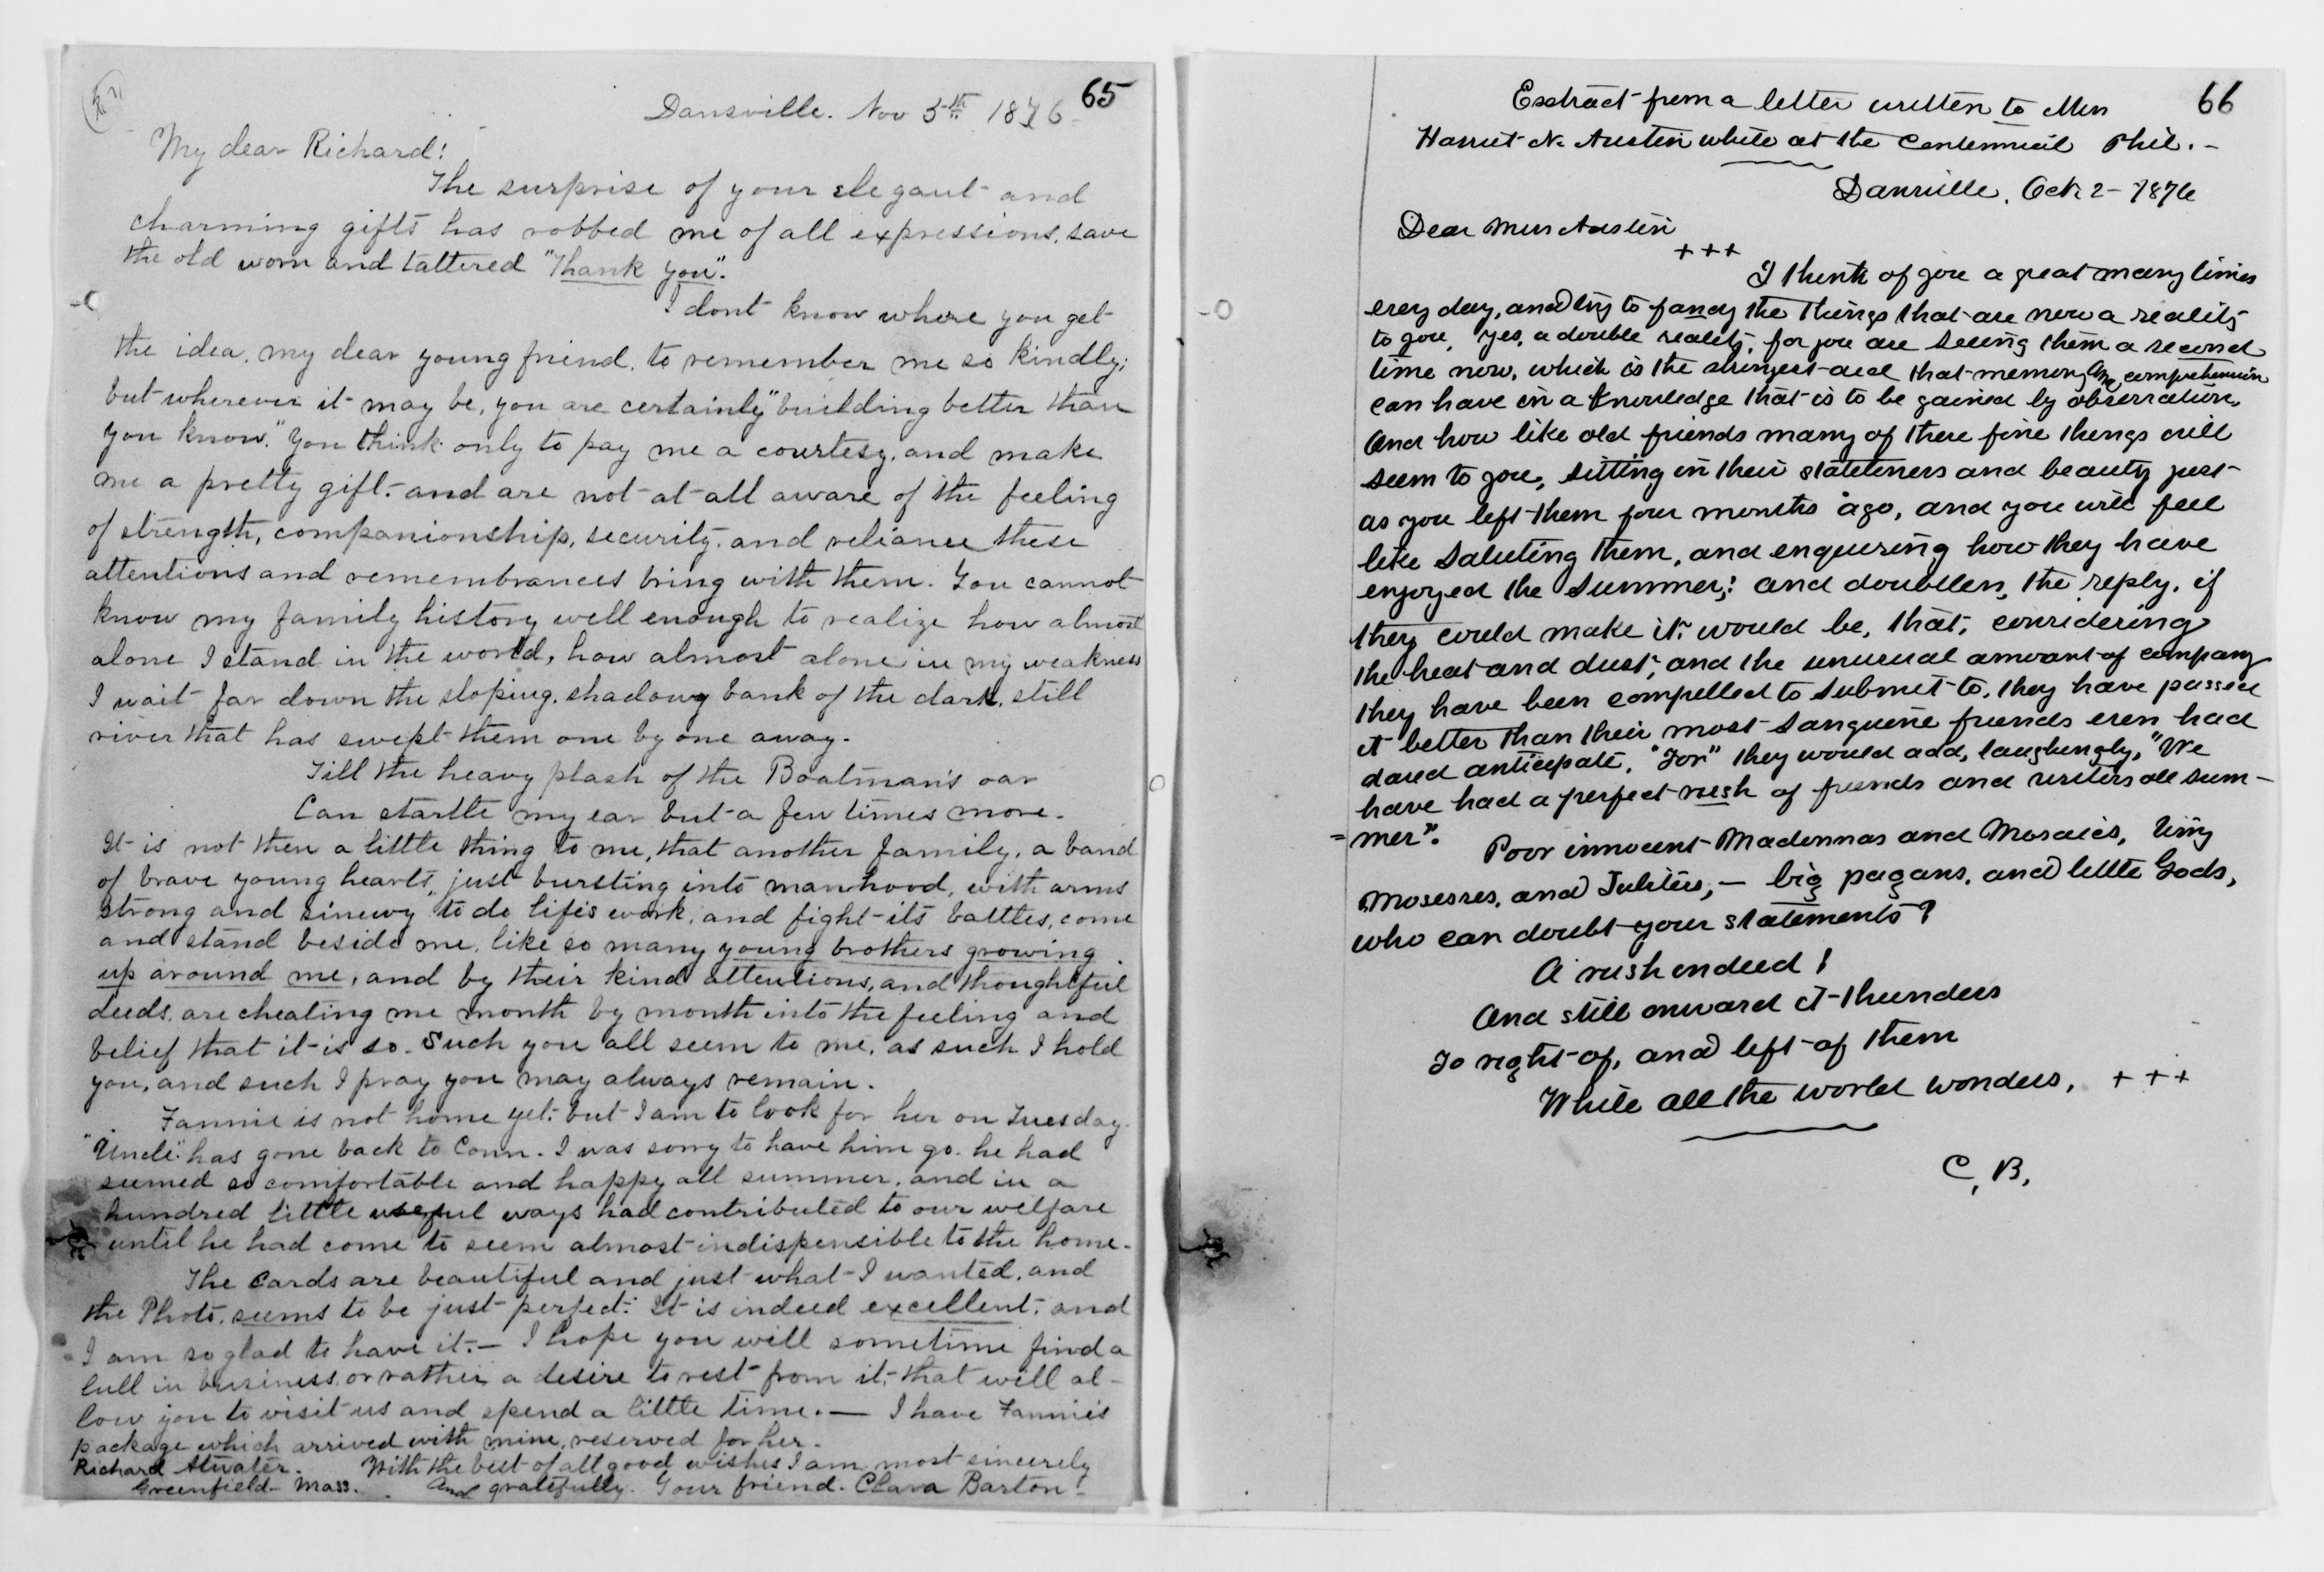 65
Dansville. Nov 5th 1876
My dear Richard!
The surprise of your elegant and
charming gifts has robbed me of all expressions, save
the old worn and tattered "Thank you".
I dont know where you get
the idea, my dear young friend, to remember me so kindly;
but wherever it may be, you are certainly "building better than
you know." You think only to pay me a courtesy, and make
me a pretty gift - and are not at all aware of the feeling
of strength, companionship, security, and reliance these
attentions and remembrances bring with them. You cannot
know my family history well enough to realize how almost
alone I stand in the world, how almost alone in my weakness
I wait far down the sloping, shadowy bank of the dark, still
river that has swept them one by one away.
Till the heavy plash of the Boatman's oar
Can startle my ear but a few times more.
It is not then a little thing to me, that another family, a band
of brave young hearts, just bursting into manhood, with arms
strong and sinewy to do life's work, and fight its battles, come
and stand beside me, like so many young brothers growing
up around me, and by their kind attentions, and thoughtful
deeds, are cheating me month by month into the feeling and
belief that it is so. Such you all seem to me, as such I hold
you, and such I pray you may always remain.
Fannie is not home yet; but I am to look for her on Tuesday.
"Uncle" has gone back to Conn. I was sorry to have him go. he had
seemed so comfortable and happy all summer, and in a
hundred little useful ways had contributed to our welfare
until he had come to seem almost indispensible to the home.
The Cards are beautiful and just what I wanted, and
the Photo. seems to be just perfect. It is indeed excellent, and
I am so glad to have it. — I hope you will sometime find a
lull in business, or rather a desire to rest from it, that will al-
low you to visit us and spend a little time. — I have Fannie's
package which arrived with mine, reserved for her.
Richard Atwater. With the best of all good wishes I am most sincerely
Greenfield Mass. And gratefully. Your friend. Clara Barton
66
Extract from a letter written to Miss
Harriet N. Austin while at the Centennial Phil. -
Dansville, Oct. 2 - 1876
Dear Miss Austin
+++
I think of you a great many times
every day, and try to fancy the things that are now a reality
to you, yes, a double reality, for you are seeing them a second
time now, which is the strongest aid that memory and comprehension
can have in a knowledge that is to be gained by observation.
And how like old friends many of these fine things will
seem to you, sitting in their stateliness and beauty just
as you left them four months ago, and you will feel
like saluting them, and enquiring how they have
enjoyed the summer; and doubtless, the reply, if
they could make it, would be, that, considering
the heat and dust, and the unusual amount of company
they have been compelled to submit to, they have passed
it better than their most sanguine friends even had
dared anticipate. "For" they would add, laughingly, "We
have had a perfect rush of friends and visitors all sum-
=mer".
Poor innocent Madonnas and Mosaics, tiny
Mosesses, and Jupiters, — big pagans, and little Gods,
who can doubt your statements?
A rush indeed!
And still onward it thunders
To right of, and left of them
While all the world wonders, +++
C. B.